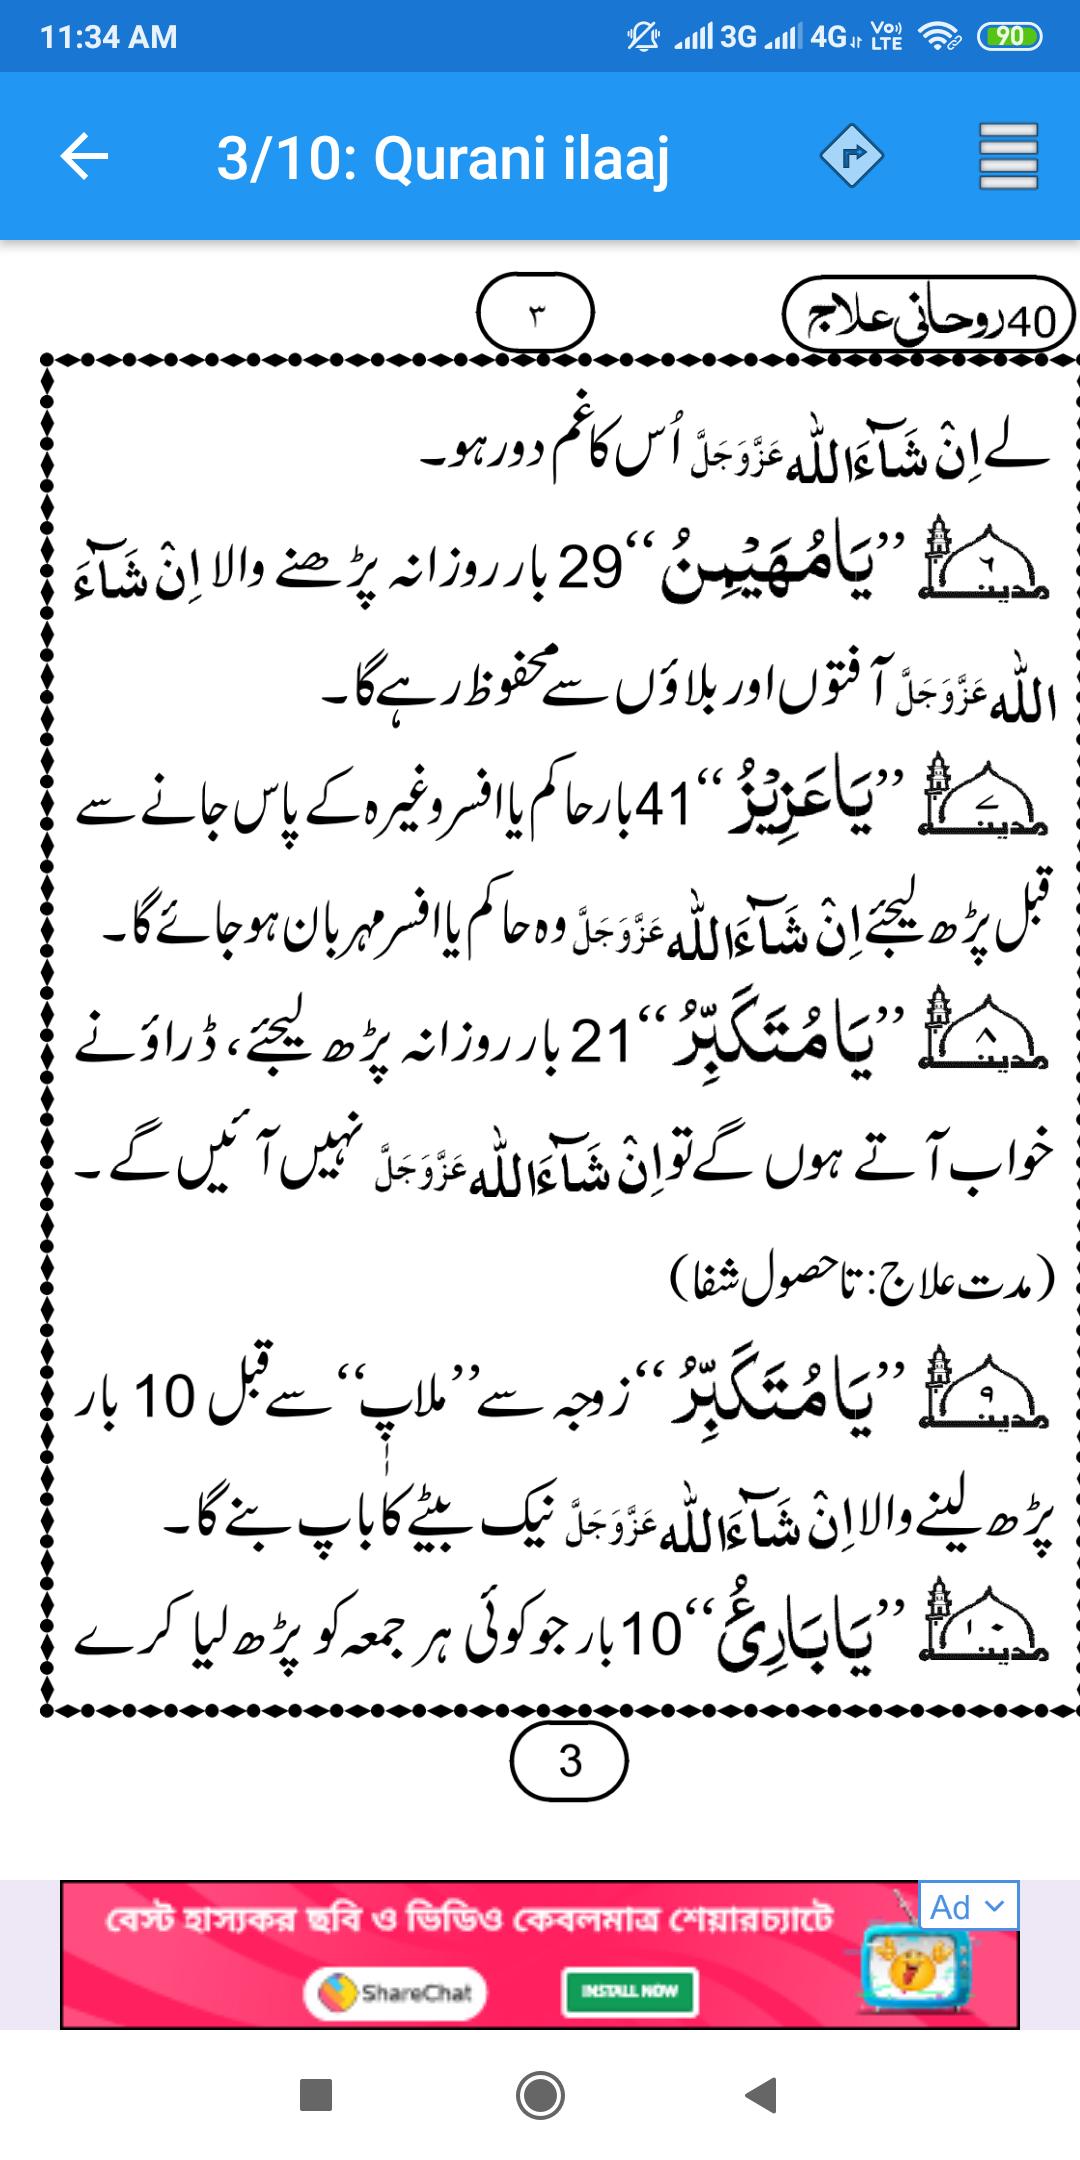 11:34 AM 3G 4G VoLTE 90
3/10: Qurani ilaaj
40 روحانی علاج
۳
لے اِنْ شَآءَاللّٰه عَزَّوَجَلَّ اُس کا غم دور ہو۔
مدینہ ۶ ’’یَامُهَیْمِنُ‘‘ 29 بار روزانہ پڑھنے والا اِنْ شَآءَ
اللّٰه عَزَّوَجَلَّ آفتوں اور بلاؤں سے محفوظ رہے گا۔
مدینہ ۷ ’’یَاعَزِیْزُ‘‘ 41 بار حاکم یا افسر وغیرہ کے پاس جانے سے
قبل پڑھ لیجئے اِنْ شَآءَاللّٰه عَزَّوَجَلَّ وہ حاکم یا افسر مہربان ہو جائے گا۔
مدینہ ۸ ’’یَامُتَکَبِّرُ‘‘ 21 بار روزانہ پڑھ لیجئے، ڈراؤنے
خواب آتے ہوں گے تو اِنْ شَآءَاللّٰه عَزَّوَجَلَّ نہیں آئیں گے۔
(مدت علاج: تا حصول شفا)
مدینہ ۹ ’’یَامُتَکَبِّرُ‘‘ زوجہ سے ’’ملاپ‘‘ سے قبل 10 بار
پڑھ لینے والا اِنْ شَآءَاللّٰه عَزَّوَجَلَّ نیک بیٹے کا باپ بنے گا۔
مدینہ ۱۰ ’’یَابَارِئُ‘‘ 10 بار جو کوئی ہر جمعہ کو پڑھ لیا کرے
3
বেস্ট হাস্যকর ছবি ও ভিডিও কেবলমাত্র শেয়ারচ্যাটে
Ad
ShareChat INSTALL NOW